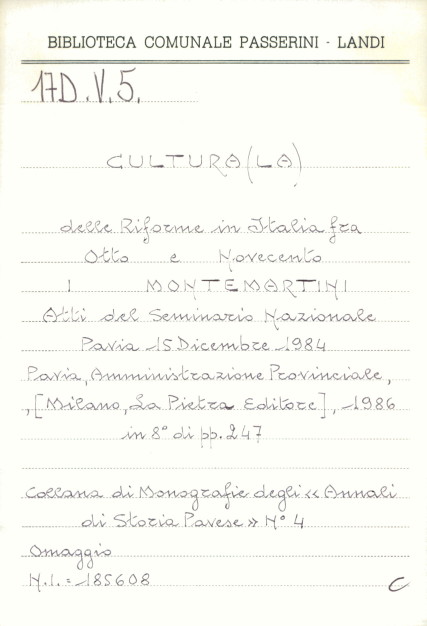 BIBLIOTECA COMUNALE PASSERINI - LANDI
17D.V.5.
CULTURA (LA)
delle Riforme in Italia fra
Otto e Novecento
I MONTEMARTINI
Atti del Seminario Nazionale
Pavia 15 Dicembre 1984
Pavia, Amministrazione Provinciale,
, [Milano, La Pietra Editore], 1986
in 8° di pp. 247
Collana di Monografie degli << Annali
di Storia Pavese >> N° 4
Omaggio
N.I. = 185608
C